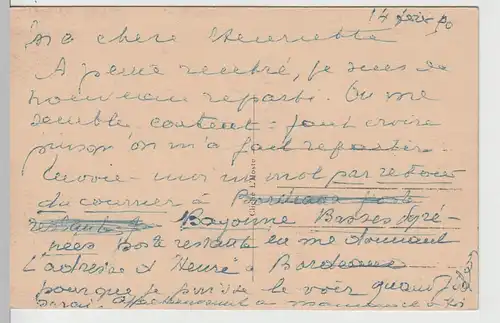 14
Ma chère Henriette
A peine rentré, je suis de
nouveau reparti. On me
semble content - faut croire
puisqu'on m'a fait repartir.
Envoie-moi un mot par retour
du courrier à Bordeaux poste
restante Bayonne Basses Pyré-
nées poste restante en me donnant
l'adresse d'Henri à Bordeaux
pour que je puisse le voir quand j'y
serai. Affectueusement à